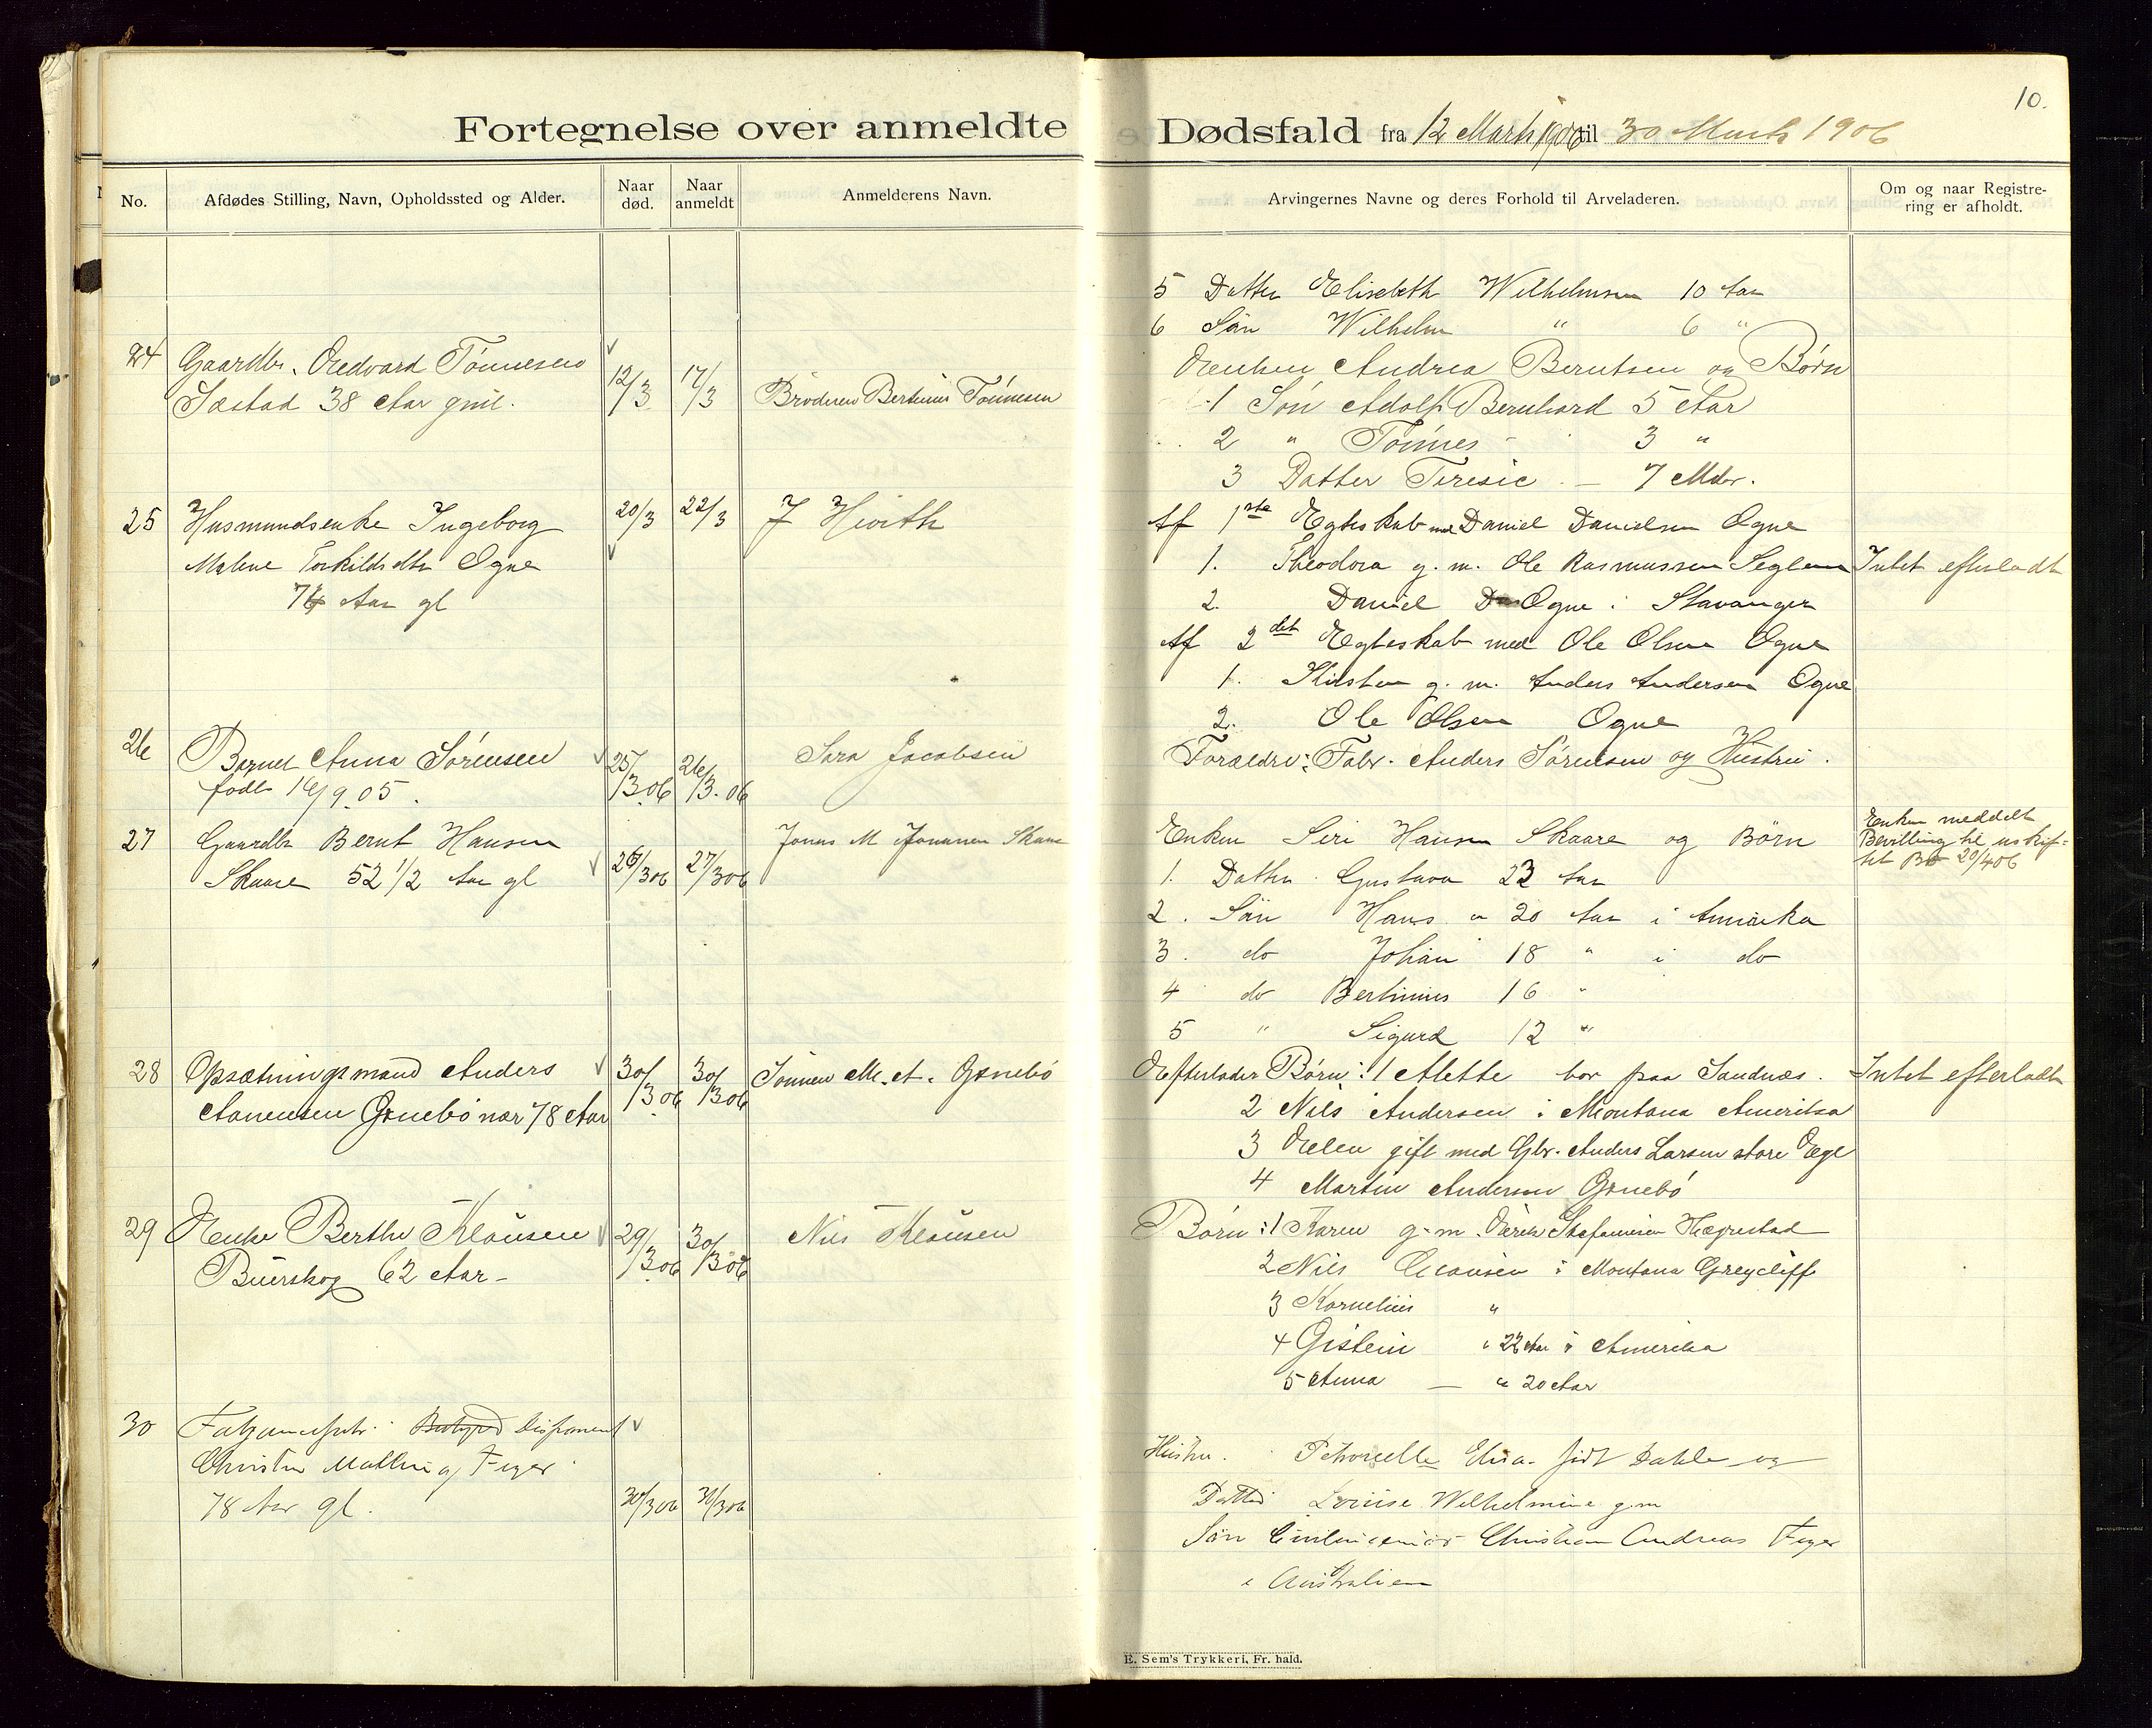 10.
Fortegnelse over anmeldte Dødsfald fra 12 Marts 1906 til 30 Marts 1906
No.
Afdødes Stilling, Navn, Opholdssted og Alder.
Naar død.
Naar anmeldt
Anmelderens Navn.
Arvingernes Navne og deres Forhold til Arveladeren.
Om og naar Registre-
ring er afholdt.
5 Datter Elisabeth Wilhelmsen 10 Aar
6 Søn Wilhelm " 6 "
24 Gaardbr. Edvard Tönnesen
Sæstad 38 Aar gml.
12/3 17/3 Broderen Bertinius Tönnesen
Enken Andrea Berntsen og Børn
1 Søn Adolf Bernhard 5 Aar
2 " Tönnes - 3 "
3 Datter Teresie - 7 Mdr.
25 Husmandsenke Ingeborg
Malene Torkildsdtr Ogne
74 Aar gl
20/3 22/3
Af 1ste Egteskab med Daniel Danielsen Ogne
1. Theodora g. m. Ole Rasmussen Seglem
Intet efterladt
2. Daniel Ogne i Stavanger
Af 2det Egteskab med Ole Olsen Ogne
1. Kirsten g. m. Anders Andersen Ogne
2. Ole Olsen Ogne
26 Barnet Anna Sørensen
født 16/9.05.
25/3.06 26/3.06 Sara Jacobsen
Forældre: Fabr. Anders Sørensen og Hustru.
27 Gaardbr Bernt Hansen
Skaare 52 1/2 Aar gl
26/3 06 27/3 06 Jonas M Skaare
Enken Siri Hansen Skaare og Børn
Enken meddelt
Bevilling til uskif-
tet Bo 20/4 06
1. Datter Gustava 23 Aar
2. Søn Hans " 20 Aar i Amerika
3. do Johan 18 " i do
4 do Bertinius 16 "
5 " Sigurd 12 "
28 Opsætningsmand Anders
Aanensen Grnebö nær 78 Aar
30/3.06 30/3 06 Sönnen M. A. Grnebö
Efterlader Børn: 1 Alette bor paa Sandnæs.
Intet efterladt
2 Nils Andersen i Montana Amerika
3 Elen gift med Gbr. Anders Larsen store Ege
4 Martin Andersen Grnebö
29 Enke Berthe Klausen
Buerskog 62 Aar -
29/3.06 30/3 06 Nils Klausen
Børn: 1 Karen g. m. Stefanusen Hægrestad
2 Nils Clausen i Montana Greycliff
3 Kornelius "
4 Gistein " 22 Aar i Amerika
5 Anna - " 20 Aar
30 Disponent
Feyer
78 Aar gl.
30/3 06 30/3 06
Hustru Petronelle Elisa født Dahle og
Datter Louise Wilhelmine g m
Søn Civilingeniør Christian Andreas Feyer
i Australien
E. Sem's Trykkeri, Fr. hald.